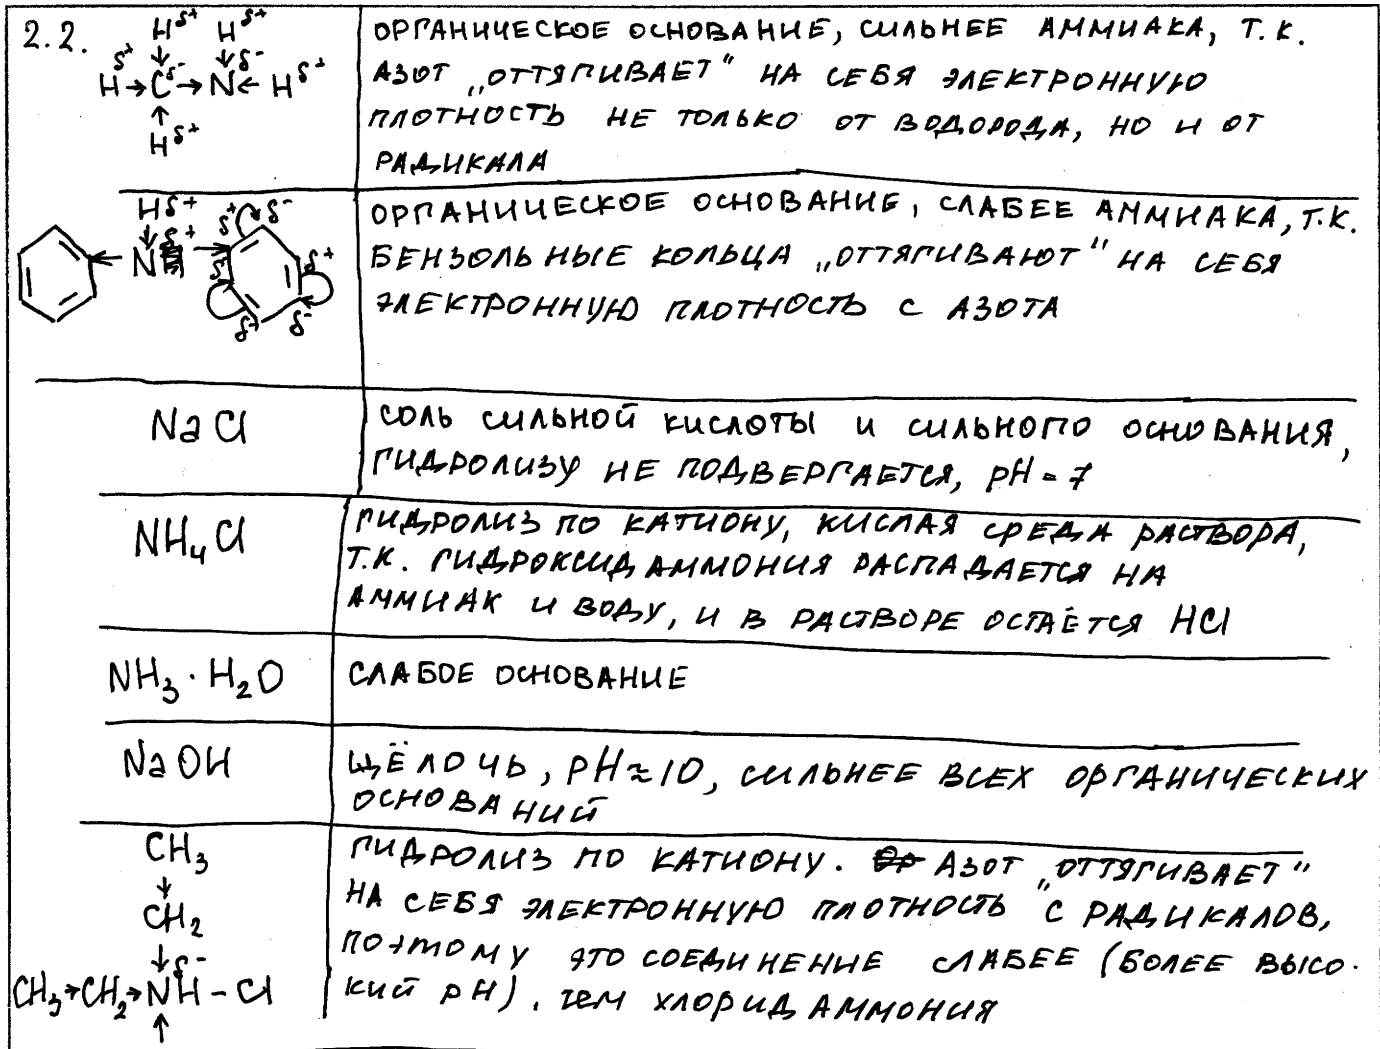 2.2.
H^δ+ H^δ+
H^δ+ → C^δ- → N^δ- ← H^δ+
H^δ+
ОРГАНИЧЕСКОЕ ОСНОВАНИЕ, СИЛЬНЕЕ АММИАКА, Т.К.
АЗОТ „ОТТЯГИВАЕТ" НА СЕБЯ ЭЛЕКТРОННУЮ
ПЛОТНОСТЬ НЕ ТОЛЬКО ОТ ВОДОРОДА, НО И ОТ
РАДИКАЛА
H^δ+ δ+ δ-
← N δ+ → δ+
δ
δ+ δ-
ОРГАНИЧЕСКОЕ ОСНОВАНИЕ, СЛАБЕЕ АММИАКА, Т.К.
БЕНЗОЛЬНЫЕ КОЛЬЦА „ОТТЯГИВАЮТ" НА СЕБЯ
ЭЛЕКТРОННУЮ ПЛОТНОСТЬ С АЗОТА
NaCl
СОЛЬ СИЛЬНОЙ КИСЛОТЫ И СИЛЬНОГО ОСНОВАНИЯ,
ГИДРОЛИЗУ НЕ ПОДВЕРГАЕТСЯ, pH = 7
NH₄Cl
ГИДРОЛИЗ ПО КАТИОНУ, КИСЛАЯ СРЕДА РАСТВОРА,
Т.К. ГИДРОКСИД АММОНИЯ РАСПАДАЕТСЯ НА
АММИАК И ВОДУ, И В РАСТВОРЕ ОСТАЁТСЯ HCl
NH₃ · H₂O
СЛАБОЕ ОСНОВАНИЕ
NaOH
ЩЁЛОЧЬ, pH ≈ 10, СИЛЬНЕЕ ВСЕХ ОРГАНИЧЕСКИХ
ОСНОВАНИЙ
CH₃
↓
CH₂
↓ δ-
CH₃ → CH₂ → NH – Cl
↑
ГИДРОЛИЗ ПО КАТИОНУ. АЗОТ „ОТТЯГИВАЕТ"
НА СЕБЯ ЭЛЕКТРОННУЮ ПЛОТНОСТЬ С РАДИКАЛОВ,
ПОЭТОМУ ЭТО СОЕДИНЕНИЕ СЛАБЕЕ (БОЛЕЕ ВЫСО-
КИЙ pH), ЧЕМ ХЛОРИД АММОНИЯ